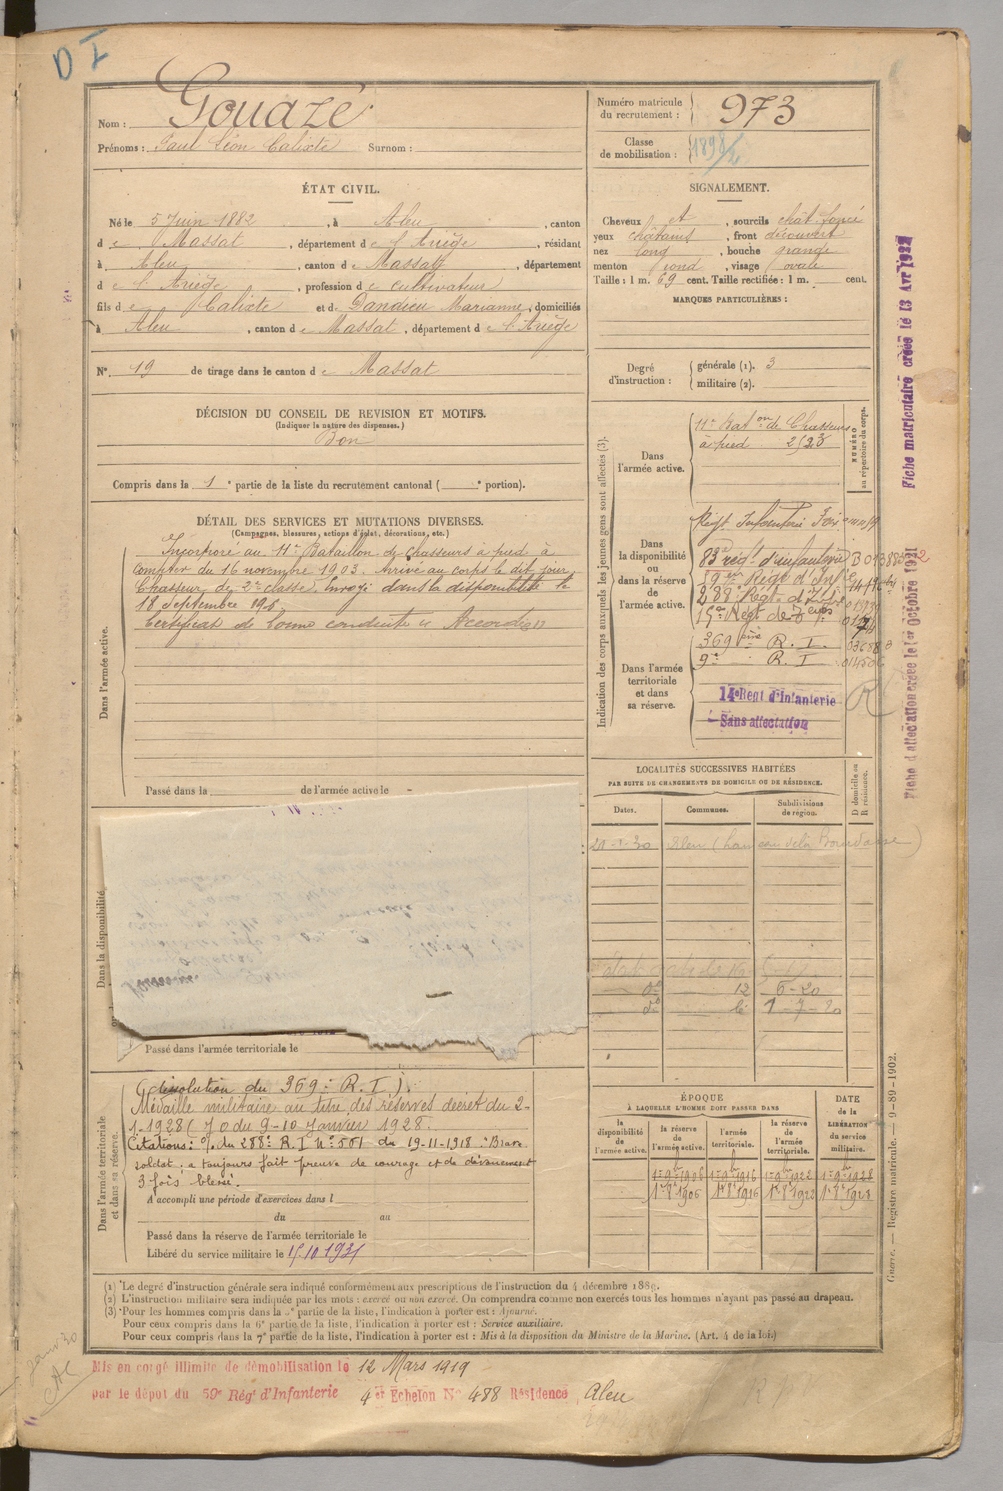 D I
Nom : Gouazé
Prénoms : Paul Léon Calixte Surnom :
ÉTAT CIVIL.
Né le 5 Juin 1882, à Aleu, canton
de Massat, département de l'Ariège, résidant
à Aleu, canton de Massat, département
de l'Ariège, profession de cultivateur
fils de Calixte et de Dandieu Marianne, domiciliés
à Aleu, canton de Massat, département de l'Ariège
N° 19 de tirage dans le canton de Massat
DÉCISION DU CONSEIL DE REVISION ET MOTIFS.
(Indiquer la nature des dispenses.)
Bon
Compris dans la 1e partie de la liste du recrutement cantonal ( e portion).
DÉTAIL DES SERVICES ET MUTATIONS DIVERSES.
(Campagnes, blessures, actions d'éclat, décorations, etc.)
Dans l'armée active.
Incorporé au 11e Bataillon de chasseurs à pied à
compter du 16 novembre 1903. Arrivé au corps le dit jour,
Chasseur de 2e classe. Envoyé dans la disponibilité le
18 Septembre
Certificat de bonne conduite "Accordé"
Passé dans la de l'armée active le
Dans la disponibilité
Passé dans l'armée territoriale le
Dans l'armée territoriale
et dans sa réserve.
(dissolution du 369e R.I.)
Médaille militaire au titre des réserves décret du 2-
1-1928 (J.O du 9-10 Janvier 1928.
Citations : O/. du 288e R.I N° 551 du 19-11-1918 "Brave
soldat, a toujours fait preuve de courage et de dévouement
3 fois blessé.
A accompli une période d'exercices dans l
du au
Passé dans la réserve de l'armée territoriale le
Libéré du service militaire le 15.10.1931
Numéro matricule
du recrutement : 973
Classe
de mobilisation : 1898/2
SIGNALEMENT.
Cheveux et, sourcils chât. foncé
yeux châtains, front découvert
nez long, bouche grande
menton rond, visage ovale
Taille : 1 m. 69 cent. Taille rectifiée : 1 m. cent.
MARQUES PARTICULIÈRES :
Degré
d'instruction :
générale (1). 3
militaire (2).
Indication des corps auxquels les jeunes gens sont affectés (3).
NUMÉRO
au répertoire du corps.
Dans
l'armée active.
11e Baton de Chasseurs
à pied
Dans
la disponibilité
ou
dans la réserve
de
l'armée active.
Régt Infanterie Foix
83e régt d'infanterie
59e Régt d'Inf
288e Régt d'Inf
15e Regt de
369 R.I.
9e R.I
Dans l'armée
territoriale
et dans
sa réserve.
14e Regt d'Infanterie
Sans affectation
LOCALITÉS SUCCESSIVES HABITÉES
PAR SUITE DE CHANGEMENTS DE DOMICILE OU DE RÉSIDENCE.
Dates. Communes. Subdivisions de région. D domicile ou R résidence.
Aleu
12 6-20
1-7-20
ÉPOQUE
À LAQUELLE L'HOMME DOIT PASSER DANS
la disponibilité de l'armée active. la réserve de l'armée active. l'armée territoriale. la réserve de l'armée territoriale.
DATE de la LIBÉRATION du service militaire.
1er 9bre 1906 1er 9bre 1916 1er 9bre 1922 1er 9bre 1928
1er 8bre 1906 1er 8bre 1916 1er 8bre 1922 1er 8bre 1928
(1) Le degré d'instruction générale sera indiqué conformément aux prescriptions de l'instruction du 4 décembre 1889.
(2) L'instruction militaire sera indiquée par les mots : exercé ou non exercé. On comprendra comme non exercés tous les hommes n'ayant pas passé au drapeau.
(3) Pour les hommes compris dans la 5e partie de la liste, l'indication à porter est : Ajourné.
Pour ceux compris dans la 6e partie de la liste, l'indication à porter est : Service auxiliaire.
Pour ceux compris dans la 7e partie de la liste, l'indication à porter est : Mis à la disposition du Ministre de la Marine. (Art. 4 de la loi.)
Mis en congé illimité de démobilisation le 12 Mars 1919
par le dépôt du 59e Régt d'Infanterie 4er Echelon N° 488 Résidence Aleu
Fiche matriculaire créée le 13 Avr 1932
Fiche d'affectation créée le 1er Octobre 1931
Guerre. — Registre matricule. — 9-89-1902.